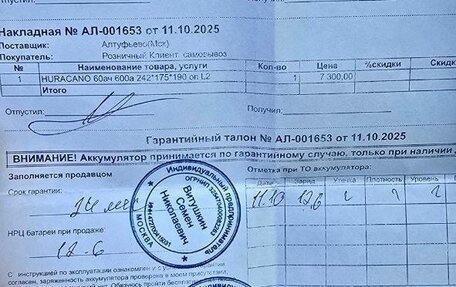 Отпустил:
Накладная № АЛ-001653 от 11.10.2025
Поставщик: Алтуфьево(Мск)
Покупатель: Розничный Клиент самовывоз
№ Наименование товара, услуги Кол-во Цена %скидки Скидк
1 HURACANO 60ач 600а 242*175*190 оп L2 1 7 300,00
Итого
Отпустил: Получил:
Гарантийный талон № АЛ-001653 от 11.10.2025
ВНИМАНИЕ! Аккумулятор принимается по гарантийному случаю, только при наличии
Заполняется продавцом
Отметка при ТО аккумулятора:
Дата Заряд Утечка Плотность Уровень
Срок гарантии:
24 мес
11.10 12,6
НРЦ батареи при продаже:
12.6
Индивидуальный предприниматель
Витушкин
Семен
Николаевич
МОСКВА
С инструкцией по эксплуатации ознакомлен и с услов
согласен, заряженность аккумулятора проверена в моем